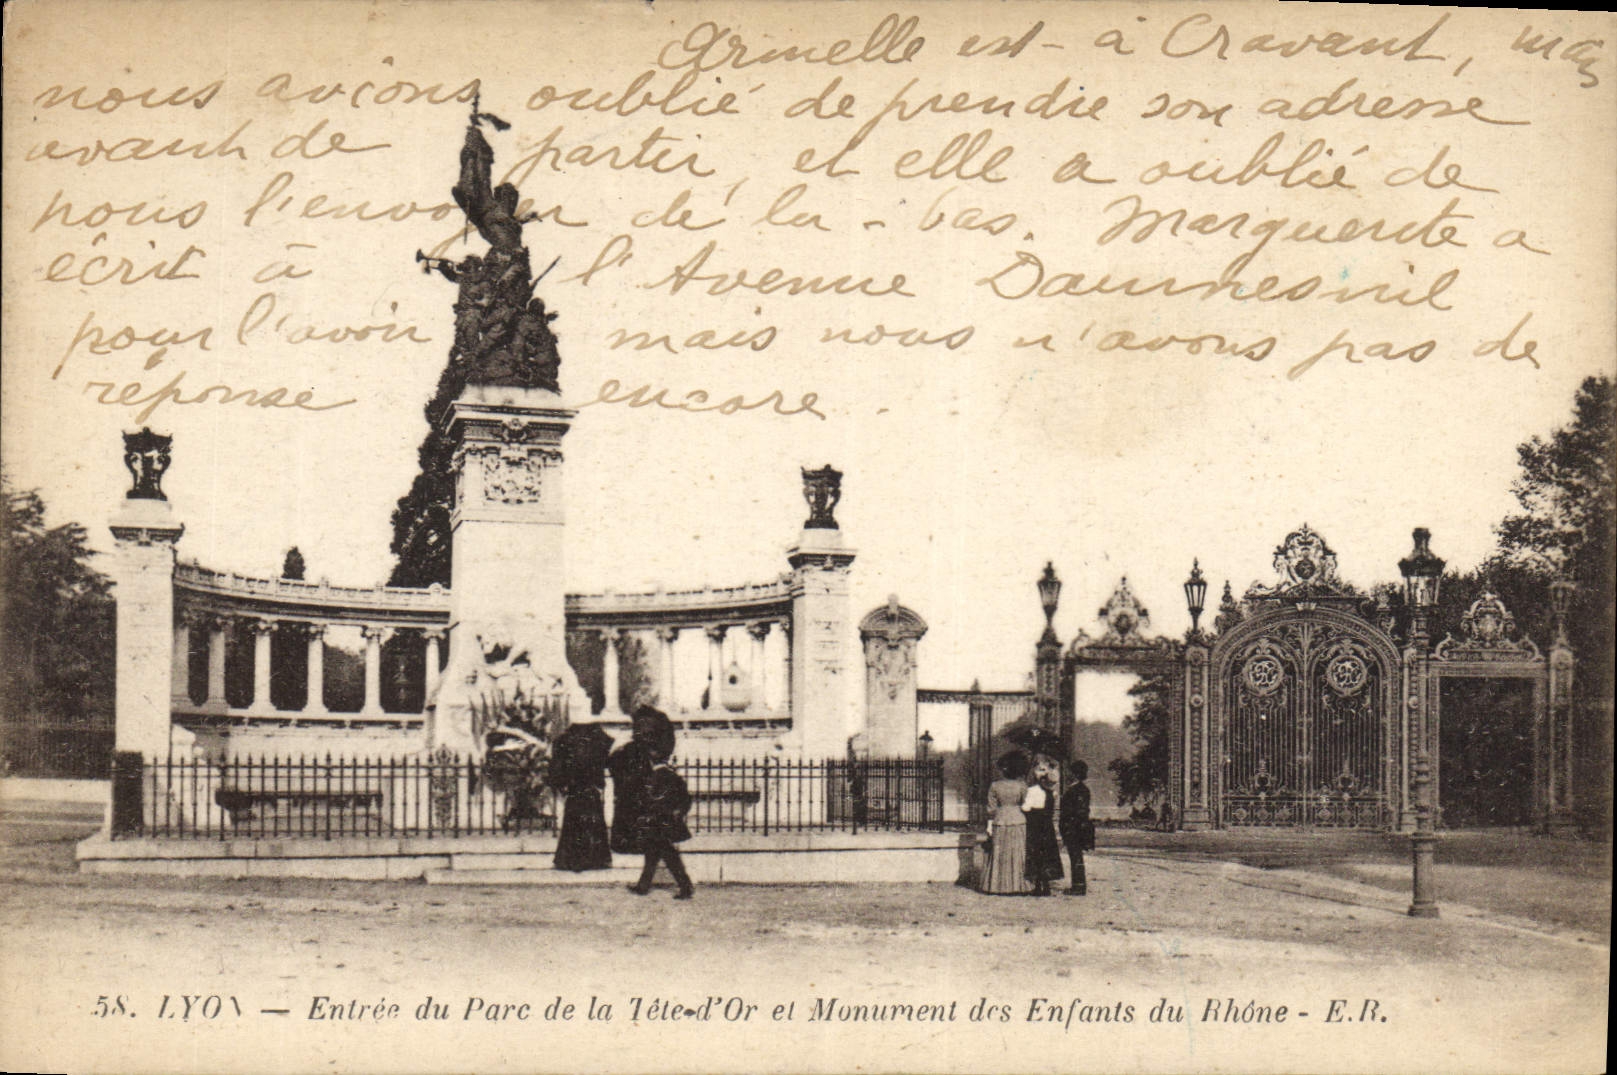 Armelle est - à Cravant, mais
nous avions oublié de prendre son adresse
avant de partir, et elle a oublié de
nous l'envoyer de là-bas. Marguerite a
écrit à l'Avenue Daumesnil
pour l'avoir mais nous n'avons pas de
réponse encore.
58. LYON — Entrée du Parc de la Tête-d'Or et Monument des Enfants du Rhône - E.R.